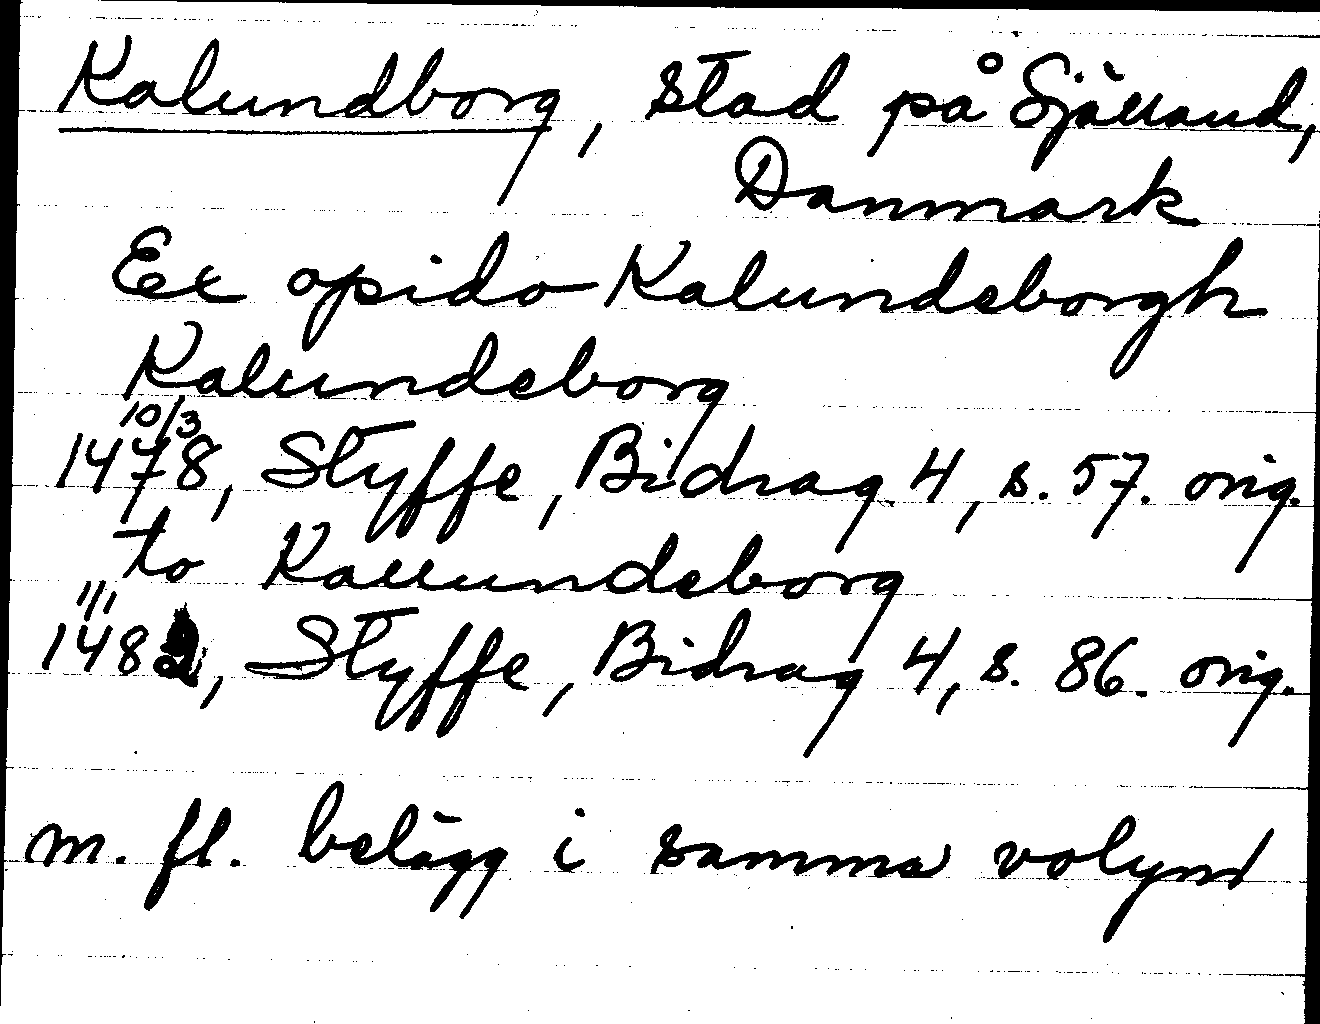 Kalundborg, stad på Själland,
Danmark
Ex opido Kalundeborgh
Kalundeborg
10/3
1478, Styffe, Bidrag 4, s. 57. orig.
to Kallundeborg
1/1
1482, Styffe, Bidrag 4, s. 86. orig.
m. fl. belägg i samma volym